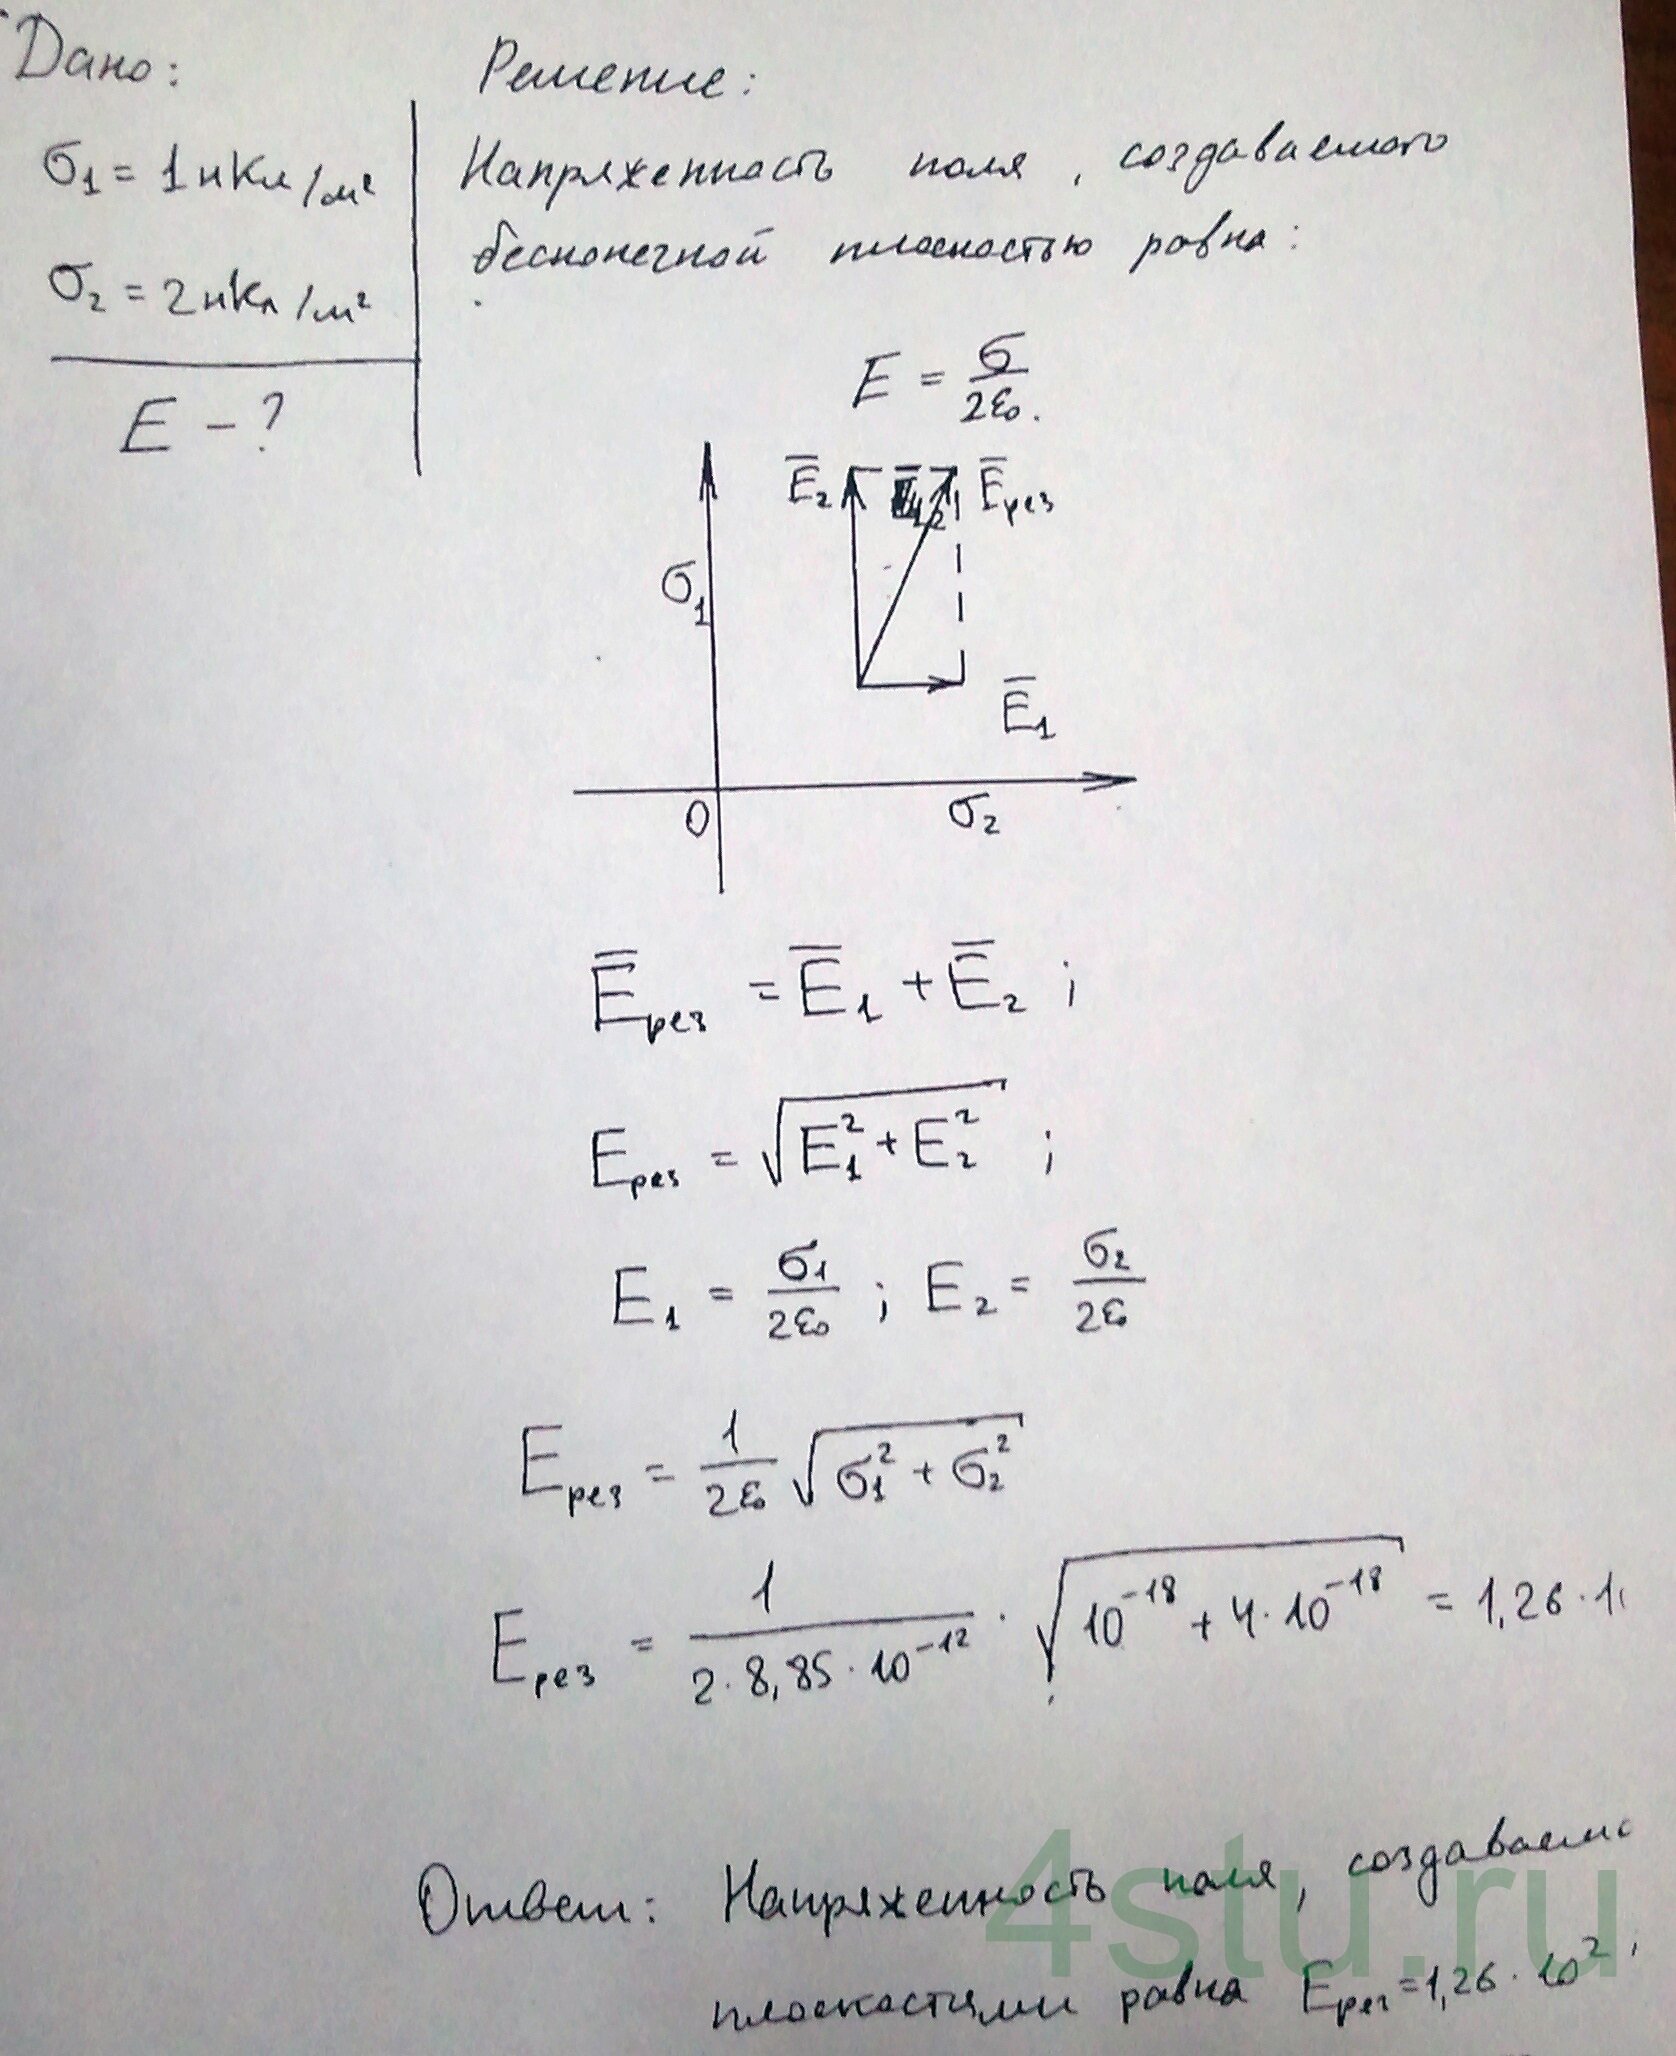 Дано:
σ₁ = 1 нКл/м²
σ₂ = 2 нКл/м²
E - ?
Решение:
Напряженность поля, создаваемого
бесконечной плоскостью равна:
E = σ/2ε₀.
E̅₂ E̅рез
σ₁
E̅₁
0 σ₂
E̅рез = E̅₁ + E̅₂ ;
Eрез = √(E₁² + E₂²) ;
E₁ = σ₁/2ε₀ ; E₂ = σ₂/2ε₀
Eрез = 1/2ε₀ √(σ₁² + σ₂²)
Eрез = 1/(2·8,85·10⁻¹²) · √(10⁻¹⁸ + 4·10⁻¹⁸) = 1,26·1
Ответ: Напряженность поля, создаваемо
плоскостями равна Eрез = 1,26·10²
4stu.ru